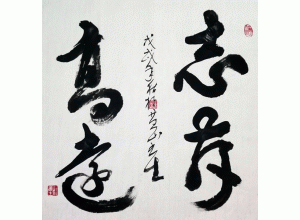 志存
高远
戊戌年秋